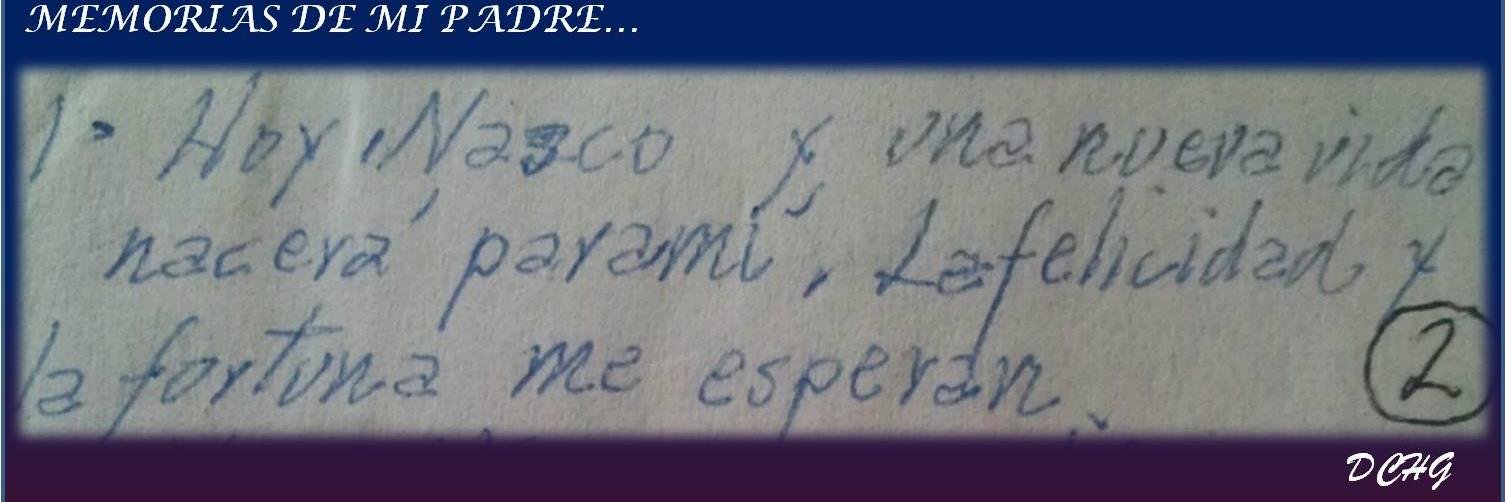 MEMORIAS DE MI PADRE...
1- Hoy Nazco y una nueva vida
nacerá para mí, La felicidad y
la fortuna me esperan.
2
DCHG